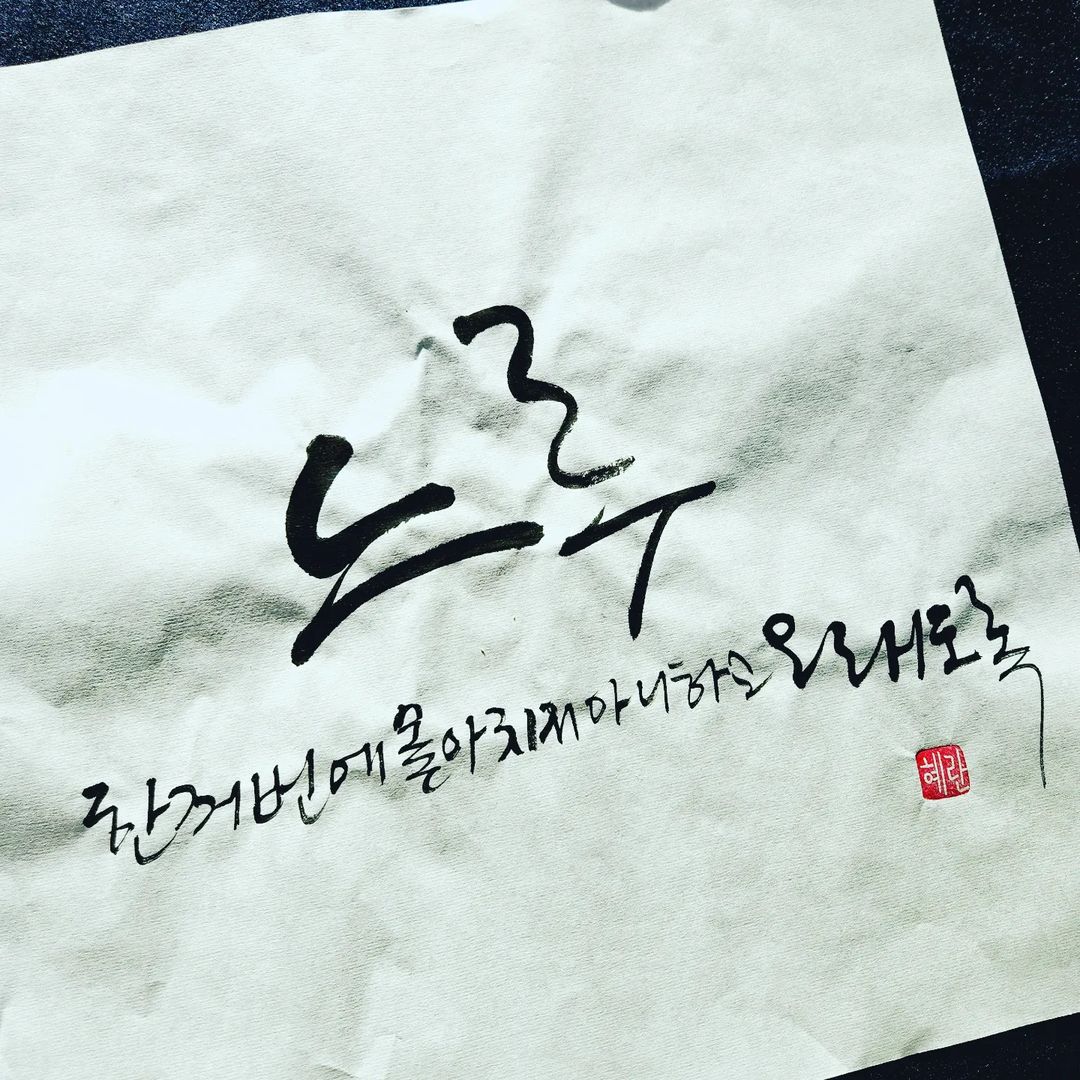 느루
한꺼번에 몰아치지 아니하고 오래도록
혜란